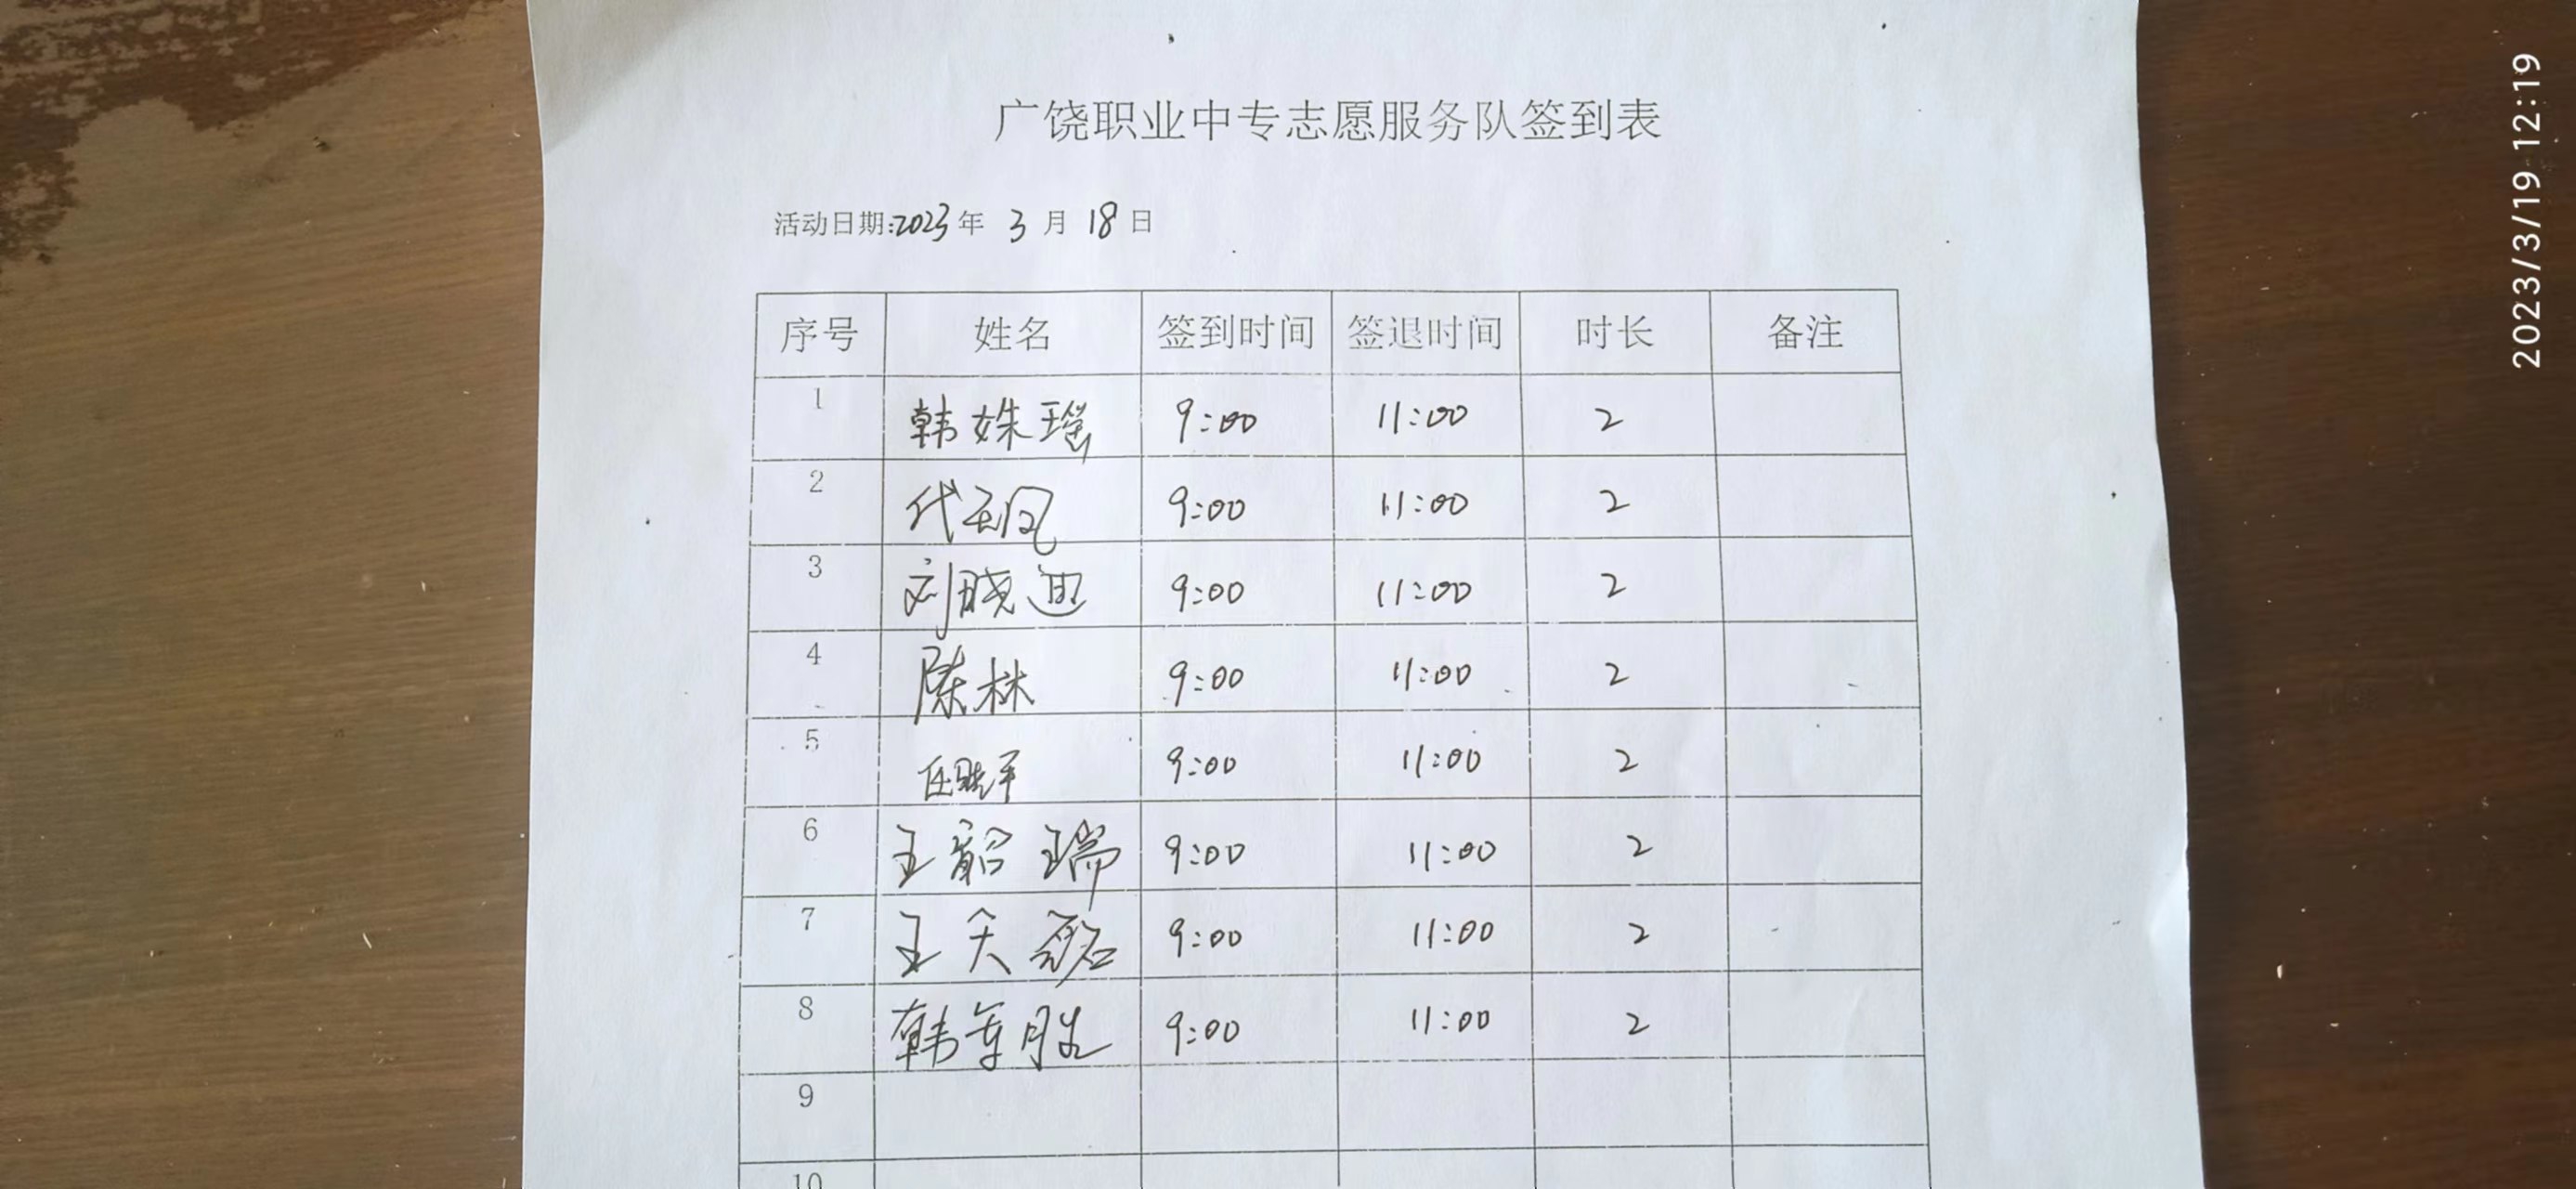 广饶职业中专志愿服务队签到表
活动日期:2023年 3 月 18 日
序号 姓名 签到时间 签退时间 时长 备注
1 韩姝瑶 9:00 11:00 2
2 代 9:00 11:00 2
3 刘晓迪 9:00 11:00 2
4 陈林 9:00 11:00 2
5 任晓平 9:00 11:00 2
6 王韶瑞 9:00 11:00 2
7 王天 9:00 11:00 2
8 韩 胜 9:00 11:00 2
9
10
2023/3/19 12:19